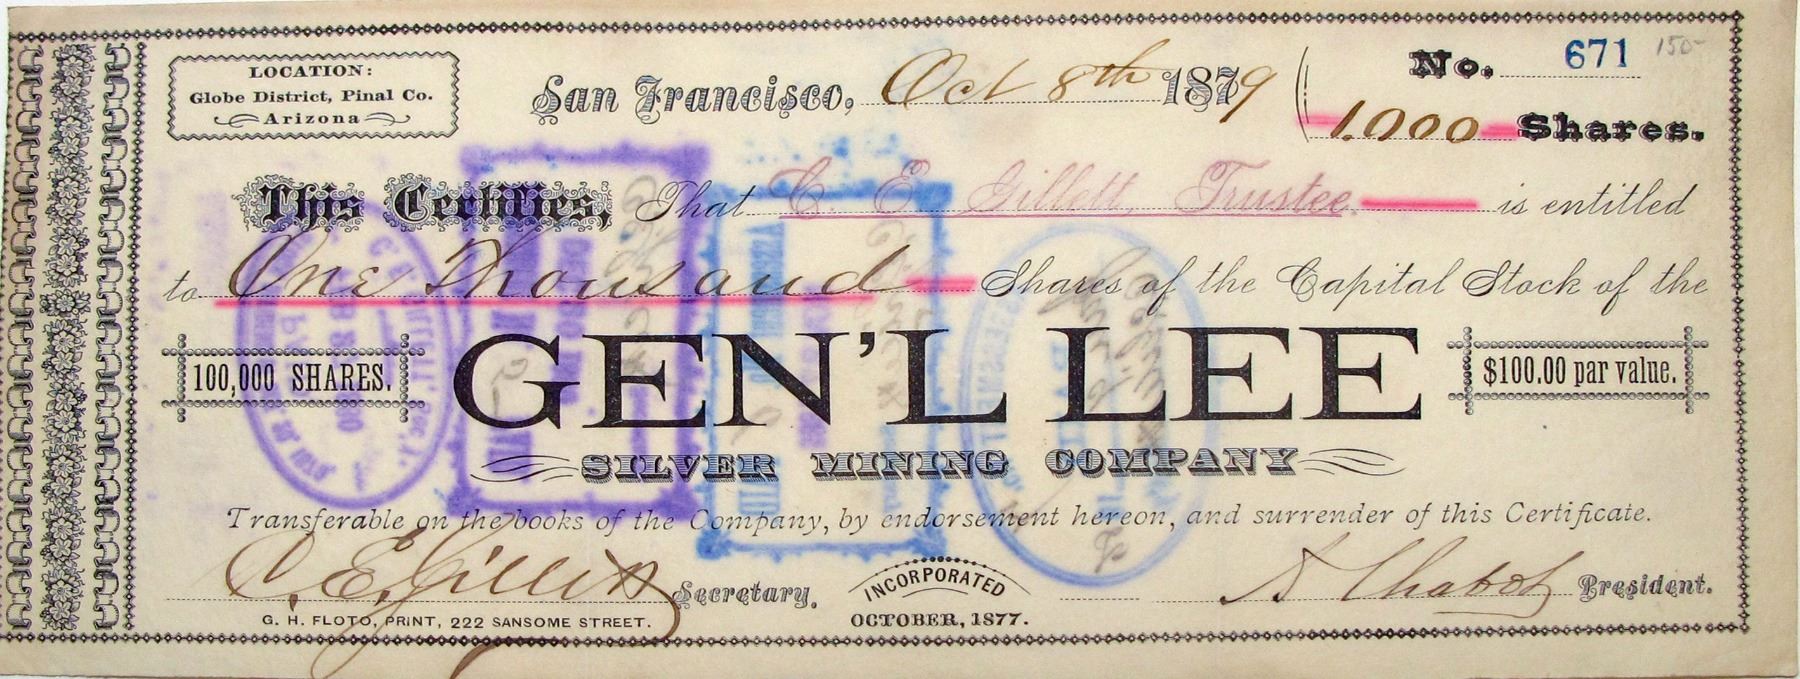 LOCATION:
Globe District, Pinal Co.
Arizona
San Francisco, Oct 8th 1879
No. 671
150-
1,000 Shares.
This Certifies, That C. E. Gillett, Trustee is entitled
to One Thousand Shares of the Capital Stock of the
100,000 SHARES.
GEN'L LEE
$100.00 par value.
SILVER MINING COMPANY
Transferable on the books of the Company, by endorsement hereon, and surrender of this Certificate.
C. E. Gillett Secretary.
INCORPORATED
OCTOBER, 1877.
A Chabot President.
G. H. FLOTO, PRINT, 222 SANSOME STREET.